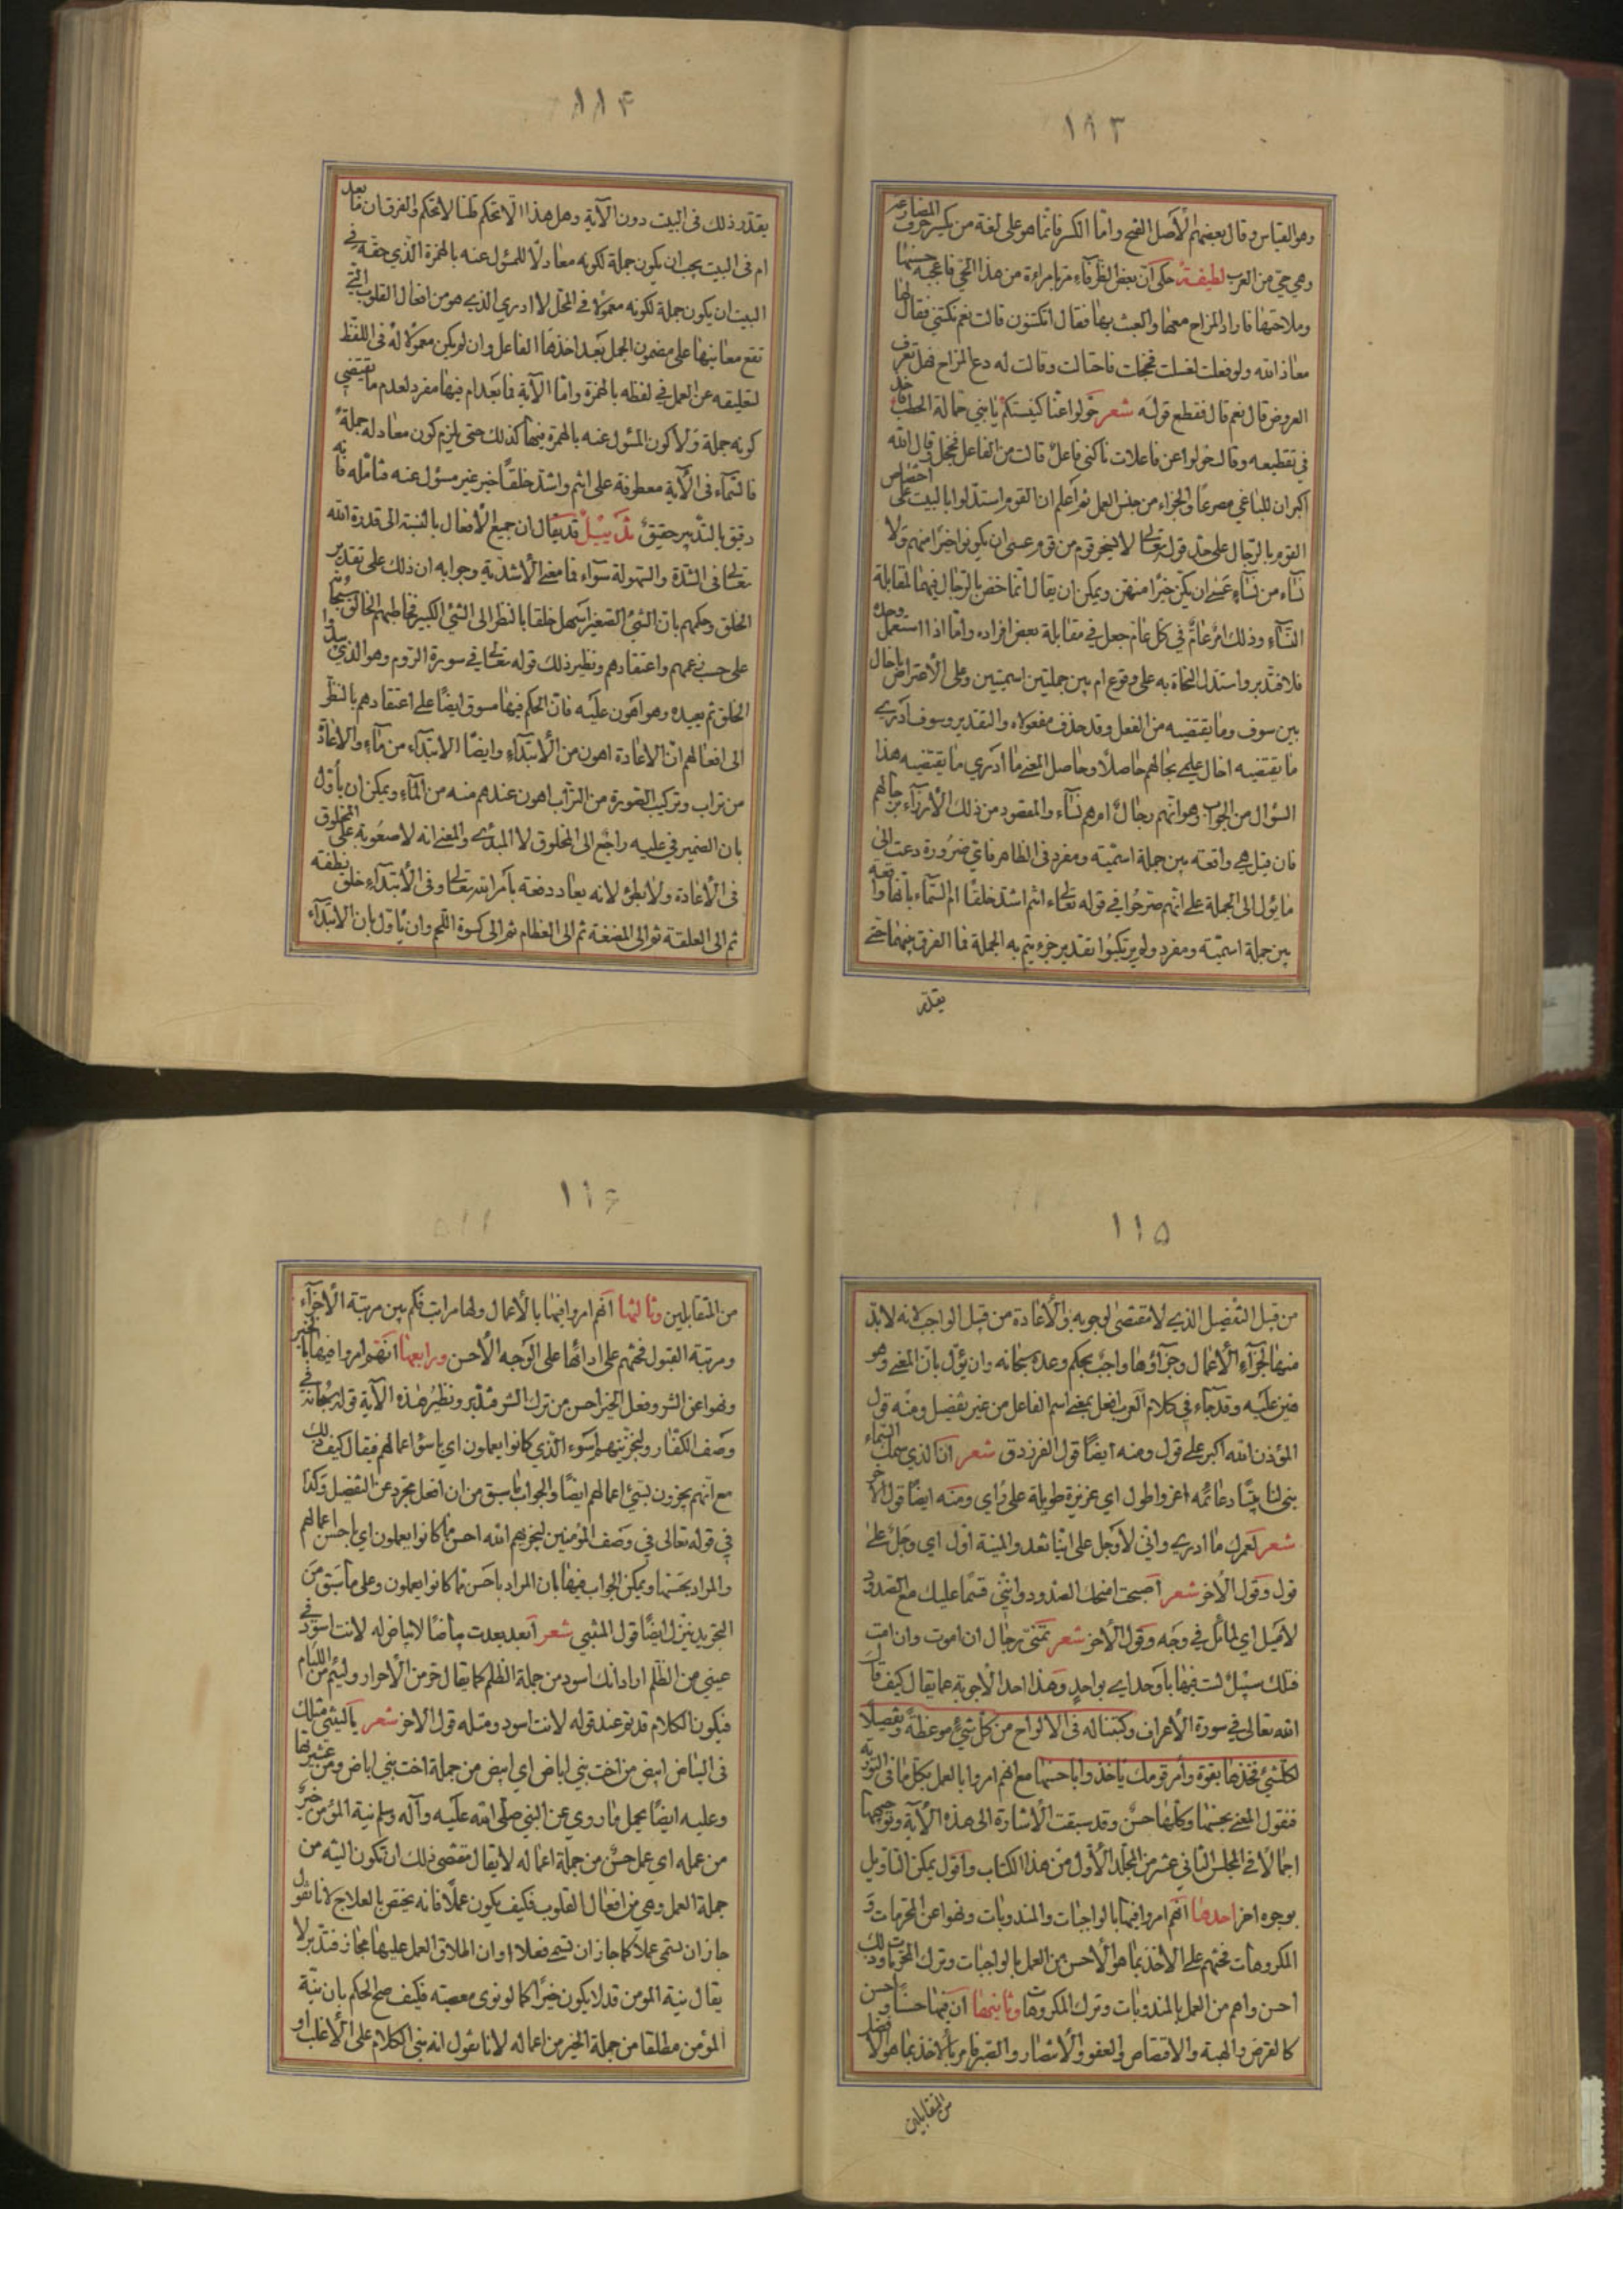 ١١٣
وهو القياس وقال بعضهم الأصل الفتح واما الكسر فانما هو على لغة من يكسر حروف المضارعة
وهي حي من العرب لطيفة حكى ان بعض الظرفاء مر بامراءة من هذا الحي فاعجبه حسنها
وملاحتها فاراد المزاح معها والعبث بها فقال اتكتنون قالت نعم نكتني فقال لها
معاذ الله ولو فعلت لغسلت فخجلت فاحتالت وقالت له دع المزاح فهل تعرف
العروض قال نعم قال فقطع قوله شعر حولوا عنا كنيستكم يا بني حمالة الحطب فاخذ
في تقطيعه وقال حولوا عن فاعلات ناكني فاعل قالت من الفاعل فخجل وقال الله
اكبر ان للباغي مصرعا والجزاء من جنس العمل ثم اعلم ان القوم استدلوا بالبيت على اختصاص
القوم بالرجال على حد قوله تعالى لا يسخر قوم من قوم عسى ان يكونوا خيرا منهم ولا
نسآء من نسآء عسى ان يكن خيرا منهن ويمكن ان يقال انما خص بالرجال فيهما لمقابلة
النسآء وذلك امر عام في كل عام جعل في مقابلة بعض افراده واما اذا استعمل وحده
فلا فتدبر واستدل النحاة به على وقوع ام بين جملتين اسميتين وعلى الأعتراض باخال
بين سوف وما يقتضيه من الفعل وقد حذف مفعولاه والتقدير وسوف ادري
ما يقتضيه اخال علمي بحالهم حاصلا وحاصل المعنى ما ادري ما يقتضيه هذا
السؤال من الجواب وهو انهم رجال ام هم نسآء والمقصود من ذلك الأزرآء بحالهم
فان قيل هي واقعة بين جملة اسمية ومفرد في الظاهر فاي ضرورة دعت الى
ما يؤل الى الجملة على انهم صرحوا في قوله تعالى ءانتم اشد خلقا ام السمآء بانها واقعة
بين جملة اسمية ومفرد ولم يرتكبوا تقدير جزء يتم به الجملة فما الفرق بينهما حتى
يقدر
١١۴
يقدر ذلك في البيت دون الآية وهل هذا الا تحكم قلنا لا تحكم والفرق ان ما بعد
ام في البيت يجب ان يكون جملة لكونه معادلا للمسؤل عنه بالهمزة الذي حقه في
البيت ان يكون جملة لكونه معمولا في المحل لا ادري الذي هو من افعال القلوب التي
تقع معانيها على مضمون الجمل بعد اخذها الفاعل وان لم يكن معمولا له في اللفظ
لتعليقه عن العمل في لفظه بالهمزة واما الآية فما بعد ام فيها مفرد لعدم ما يقتضي
كونه جملة ولا كون المسؤل عنه بالهمزة فيها كذلك حتى يلزم كون معادله جملة
فالسمآء في الآية معطوفة على انتم واشد خلقا خبر غير مسؤل عنه فتامله فانه
دقيق بالتدبر حقيق تذييل قد يقال ان جميع الأفعال بالنسبة الى قدرة الله
تعالى في الشدة والسهولة سوآء فما معنى الأشدية وجوابه ان ذلك على تقدير
الخلق وحكمهم بان الشئ الصغير اسهل خلقا بالنظر الى الشئ الكبير فخاطبهم الخالق سبحانه
على حسب زعمهم واعتقادهم ونظير ذلك قوله تعالى في سورة الروم وهو الذي يبدؤا
الخلق ثم يعيده وهو اهون عليه فان الحكم فيها مسوق ايضا على اعتقادهم بالنظر
الى افعالهم ان الاعادة اهون من الأبتدآء وايضا الابتدآء من مآء والاعادة
من تراب وتركيب الصورة من التراب اهون عندهم منه من المآء ويمكن ان يأول
بان الضمير في عليه راجع الى المخلوق لا المبدئ والمعنى انه لا صعوبة على المخلوق
في الأعادة ولا بطئ لانه يعاد دفعة بامر الله تعالى وفي الأبتدآء خلق نطفة
ثم الى العلقة ثم الى المضغة ثم الى العظام ثم الى كسوة اللحم وان يأول بان الابتدآء
١١۵
من قبل التفضيل الذي لا مقتضى لوجوبه والأعادة من قبل الواجب لانه لابد
منها لجزآء الأعمال وجزآؤها واجب بحكم وعده سبحانه وان يؤل بان المعنى وهو
هين عليه وقد جآء في كلام العرب افعل بمعنى اسم الفاعل من غير تفضيل ومنه قول
المؤذن الله اكبر على قول ومنه ايضا قول الفرزدق شعر ان الذي سمك السماء
بنى لنا بيتا دعائمه اعز واطول اي عزيزة طويلة على رأي ومنه ايضا قول الآخر
شعر لعمرك ما ادري واني لأوجل على اينا تعدو المنية اول اي وجل على
قول وقول الأخر شعر اصبحت امنحك الصدود وانني قسما عليك مع الصدود
لأميل اي لمائل في وجه وقول الأخر شعر تمنى رجال ان اموت وان امت
فتلك سبيل لست فيها بأوحد اي بواحد وهذا احد الأجوبة عما يقال كيف قال
الله تعالى في سورة الأعراف وكتبنا له في الالواح من كل شئ موعظة وتفصيلا
لكل شئ فخذها بقوة وأمر قومك يأخذوا باحسنها مع انهم امروا بالعمل بكل ما في التورية
فنقول المعنى بحسنها وكلها حسن وقد سبقت الأشارة الى هذه الآية وتوجيهها
اجمالا في المجلس الثاني عشر من المجلد الأول من هذا الكتاب واقول يمكن التأويل
بوجوه اخر احدها انهم امروا فيها بالواجبات والمندوبات ونهوا عن المحرمات و
المكروهات فحثهم على الاخذ بما هو الأحسن من العمل بالواجبات وترك المحرمات وذلك
احسن واهم من العمل بالمندوبات وترك المكروهات وثانيها ان فيها حسنا واحسن
كالقرض والهبة والاقتصاص والعفو والأنتصار والصبر فامر بالأخذ بما هو الأفضل
من المتقابلين
١١۶
من المتقابلين وثالثها انهم امروا فيها بالأعمال ولها مراتب فكم بين مرتبة الأجزآء
ومرتبة القبول فحثهم على ادائها على الوجه الأحسن ورابعها انهم امروا فيها بالخير
ونهوا عن الشر وفعل الخير احسن من ترك الشر فتدبر ونظير هذه الآية قوله سبحانه في
وصف الكفار ولنجزينهم اسوء الذي كانوا يعملون اي باسوأ اعمالهم فيقال كيف ذلك
مع انهم يجزون بسيئ اعمالهم ايضا والجواب ما سبق من ان افعل مجرد عن التفضيل وكذا
في قوله تعالى في وصف المؤمنين ليجزيهم الله احسن ما كانوا يعملون اي باحسن اعمالهم
والمراد بحسنها ويمكن الجواب فيها بان المراد باحسن مما كانوا يعملون وعلى ما سبق من
التجريد ينزل ايضا قول المتنبي شعر ابعد بعدت بياضا لا بياض له لانت اسود في
عيني من الظلم اراد انك اسود من جملة الظلم كما يقال حر من الأحرار ولئيم من اللئام
فيكون الكلام قد تم عند قوله لانت اسود ومثله قول الاخر شعر
في البياض ابيض من اخت بني اباض اي ابيض من جملة اخت بني اباض ومن عشيرتها
وعليه ايضا يحمل ما روي عن النبي صلى الله عليه وآله وسلم نية المؤمن خير
من عمله اي عمل حسن من جملة اعماله لا يقال مقتضى ذلك ان تكون النية من
جملة العمل وهي من افعال القلوب فكيف يكون عملا فانه يختص بالعلاج لانا نقول
جاز ان تسمى عملا كما جاز ان تسمى فعلا او ان اطلاق العمل عليها مجاز فتدبر لا
يقال نية المومن قد لا يكون خيرا كما لو نوى معصية فكيف صح الحكم بان نية
المؤمن مطلقا من جملة الخير من اعماله لانا نقول انه بني الكلام على الأغلب او